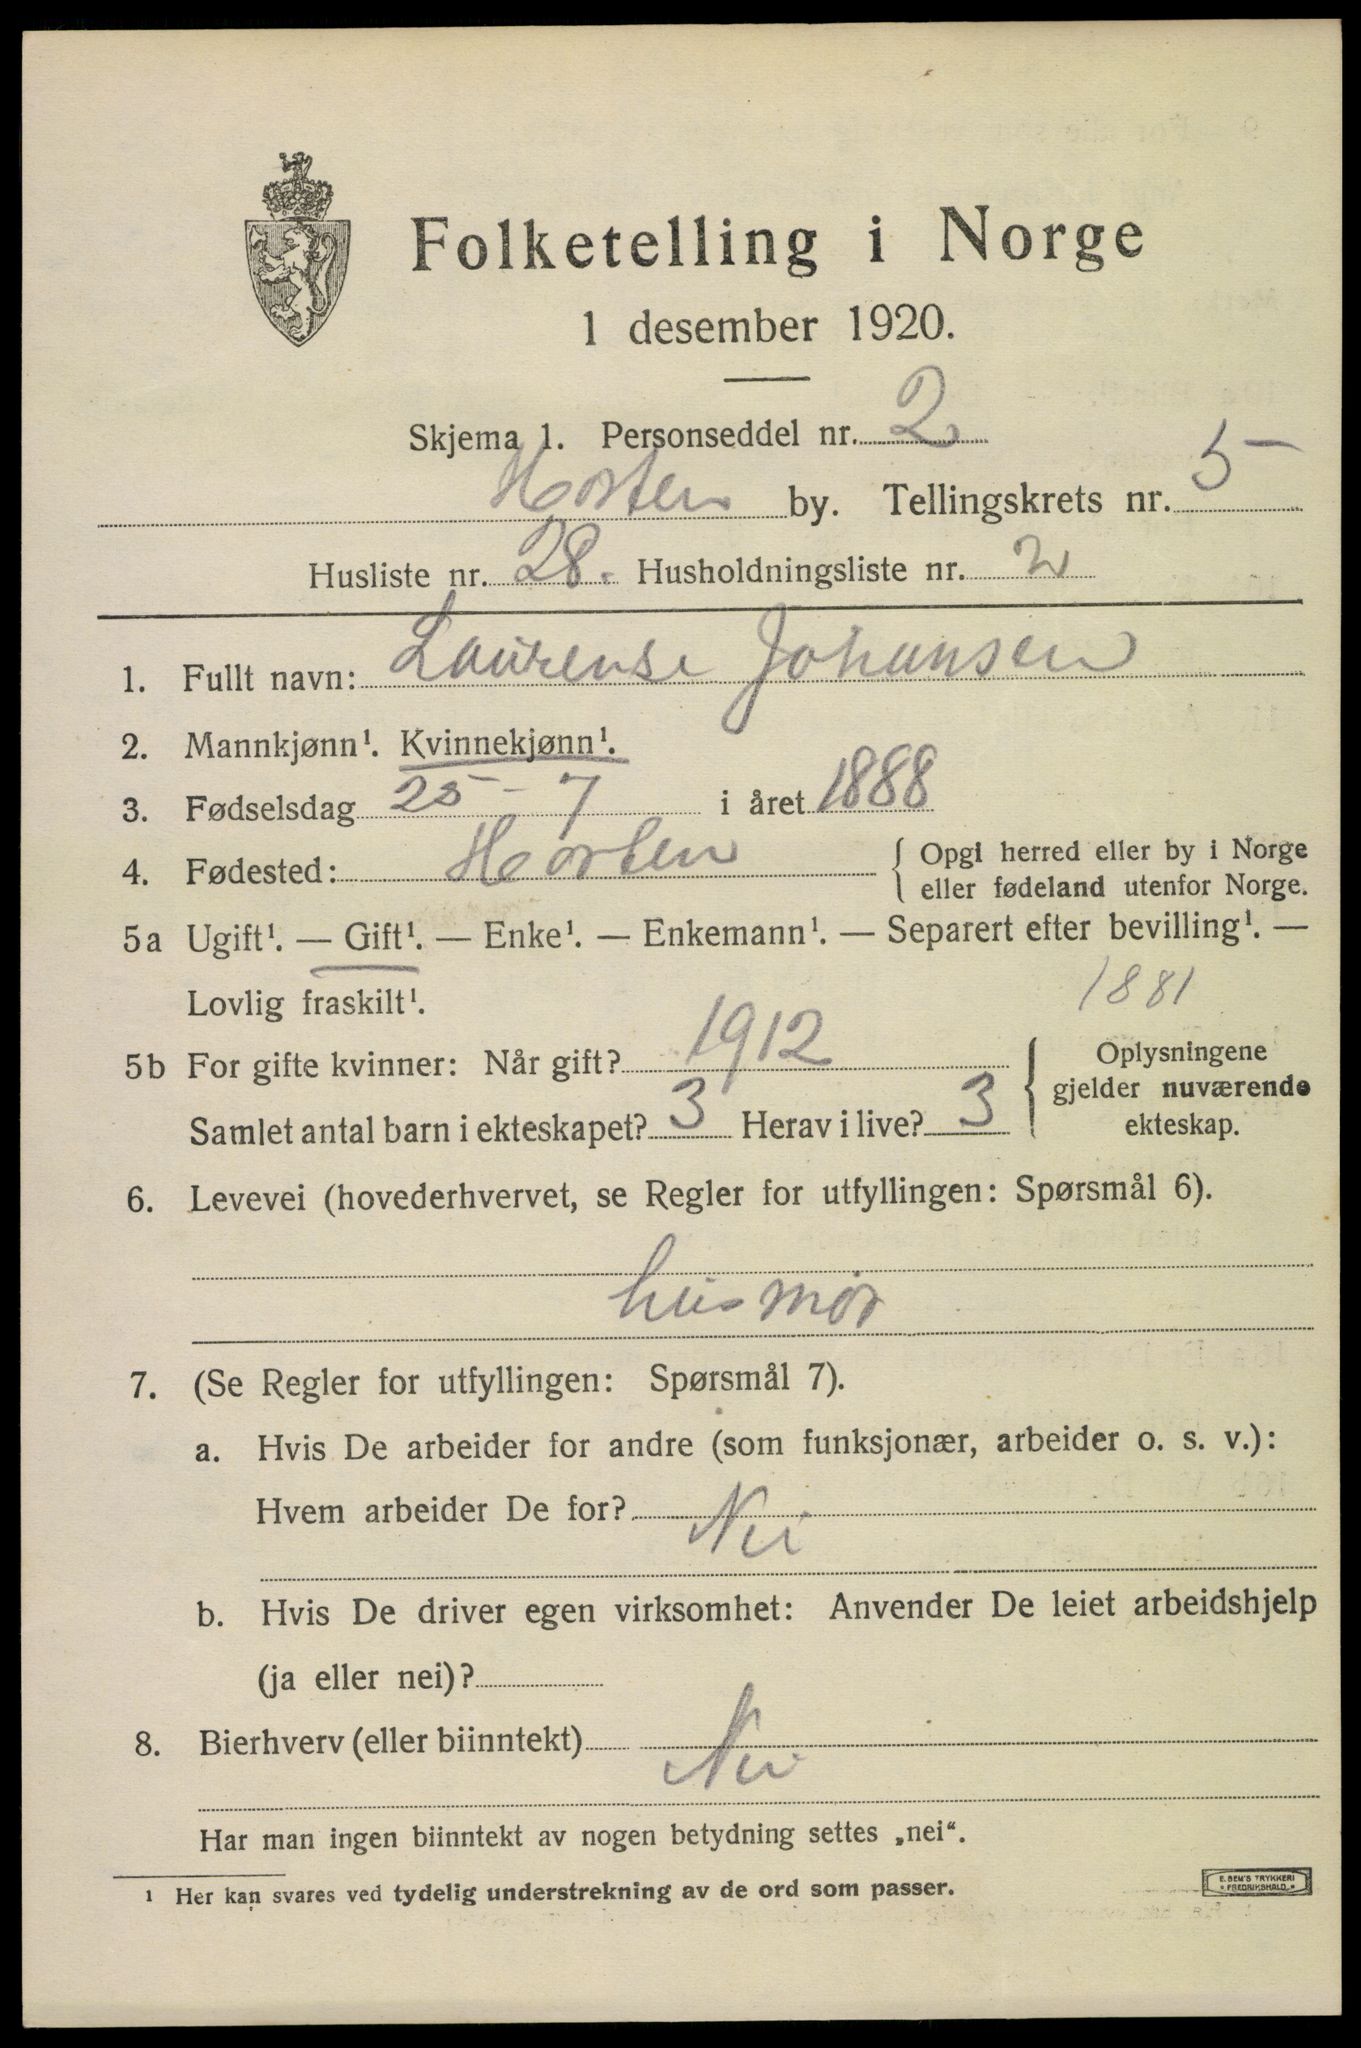 Folketelling i Norge
1 desember 1920.
Skjema 1. Personseddel nr. 2
Horten by. Tellingskrets nr. 5
Husliste nr. 28. Husholdningsliste nr. 2
1. Fullt navn: Laurense Johansen
2. Mannkjønn¹. Kvinnekjønn¹.
3. Fødselsdag 25 - 7 i året 1888
4. Fødested: Horten { Opgi herred eller by i Norge
eller fødeland utenfor Norge.
5a Ugift¹. — Gift¹. — Enke¹. — Enkemann¹. — Separert efter bevilling¹. —
Lovlig fraskilt¹. 1881
5b For gifte kvinner: Når gift? 1912 } Oplysningene
gjelder nuværende
Samlet antal barn i ekteskapet? 3 Herav i live? 3 ekteskap.
6. Levevei (hovederhvervet, se Regler for utfyllingen: Spørsmål 6).
husmør
7. (Se Regler for utfyllingen: Spørsmål 7).
a. Hvis De arbeider for andre (som funksjonær, arbeider o. s. v.):
Hvem arbeider De for? Nei
b. Hvis De driver egen virksomhet: Anvender De leiet arbeidshjelp
(ja eller nei)?
8. Bierhverv (eller biinntekt) Nei
Har man ingen biinntekt av nogen betydning settes „nei“.
¹ Her kan svares ved tydelig understrekning av de ord som passer.
E. SEM'S TRYKKERI
FREDRIKSHALD